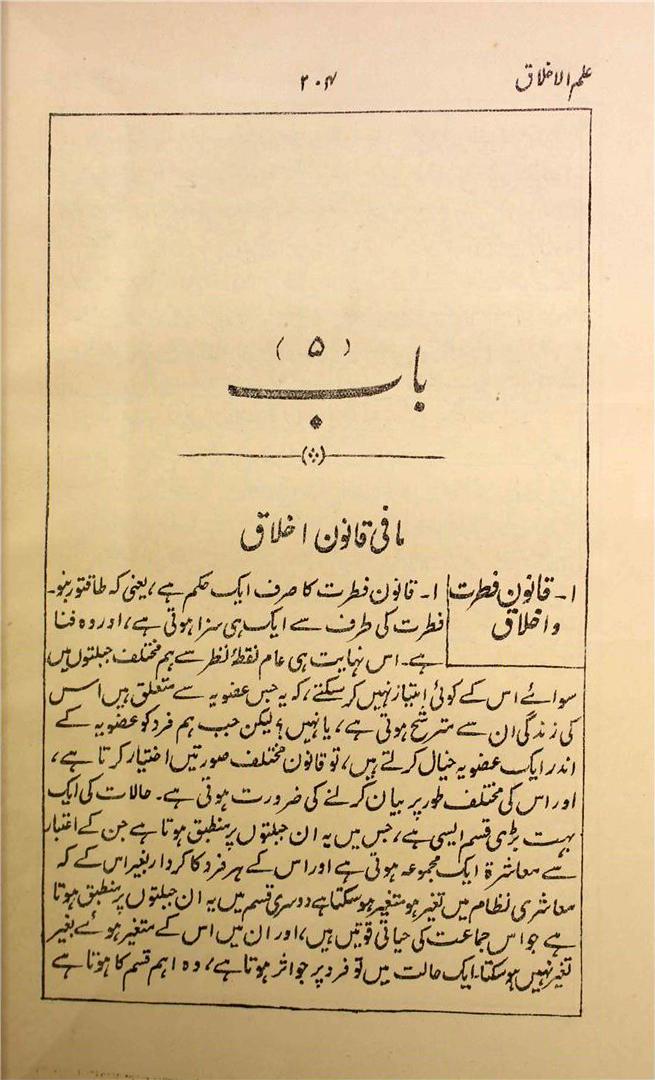 علم الاخلاق ۲۰۴
باب (۵)
مافی قانون اخلاق
۱۔ قانون فطرت
و اخلاق
۱۔ قانون فطرت کا صرف ایک حکم ہے، یعنی کہ طاقتور بنو۔
فطرت کی طرف سے ایک ہی سزا ہوتی ہے، اور وہ فنا
ہے۔ اس نہایت ہی عام نقطۂ نظر سے ہم مختلف جبلتوں میں
سوائے اس کے کوئی امتیاز نہیں کر سکتے، کہ یہ جس عضویہ سے متعلق ہیں اس
کی زندگی ان سے مترشح ہوتی ہے، یا نہیں؟ لیکن جب ہم فرد کو عضویہ کے
اندر ایک عضویہ خیال کرتے ہیں، تو قانون مختلف صورتیں اختیار کرتا ہے،
اور اس کی مختلف طور پر بیان کرنے کی ضرورت ہوتی ہے۔ حالات کی ایک
بہت بڑی قسم ایسی ہے، جس میں یہ ان جبلتوں پر منطبق ہوتا ہے جن کے اعتبار
سے معاشرۃ ایک مجموعہ ہوتی ہے اور اس کے ہر فرد کا کردار بغیر اس کے کہ
معاشری نظام میں تغیر ہو متغیر ہو سکتا ہے دوسری قسم میں یہ ان جبلتوں پر منطبق ہوتا
ہے جو اس جماعت کی حیاتی قوتیں ہیں، اور ان میں اس کے متغیر ہوئے بغیر
تغیر نہیں ہو سکتا۔ ایک حالت میں تو فرد پر جو اثر ہوتا ہے، وہ اہم قسم کا ہوتا ہے